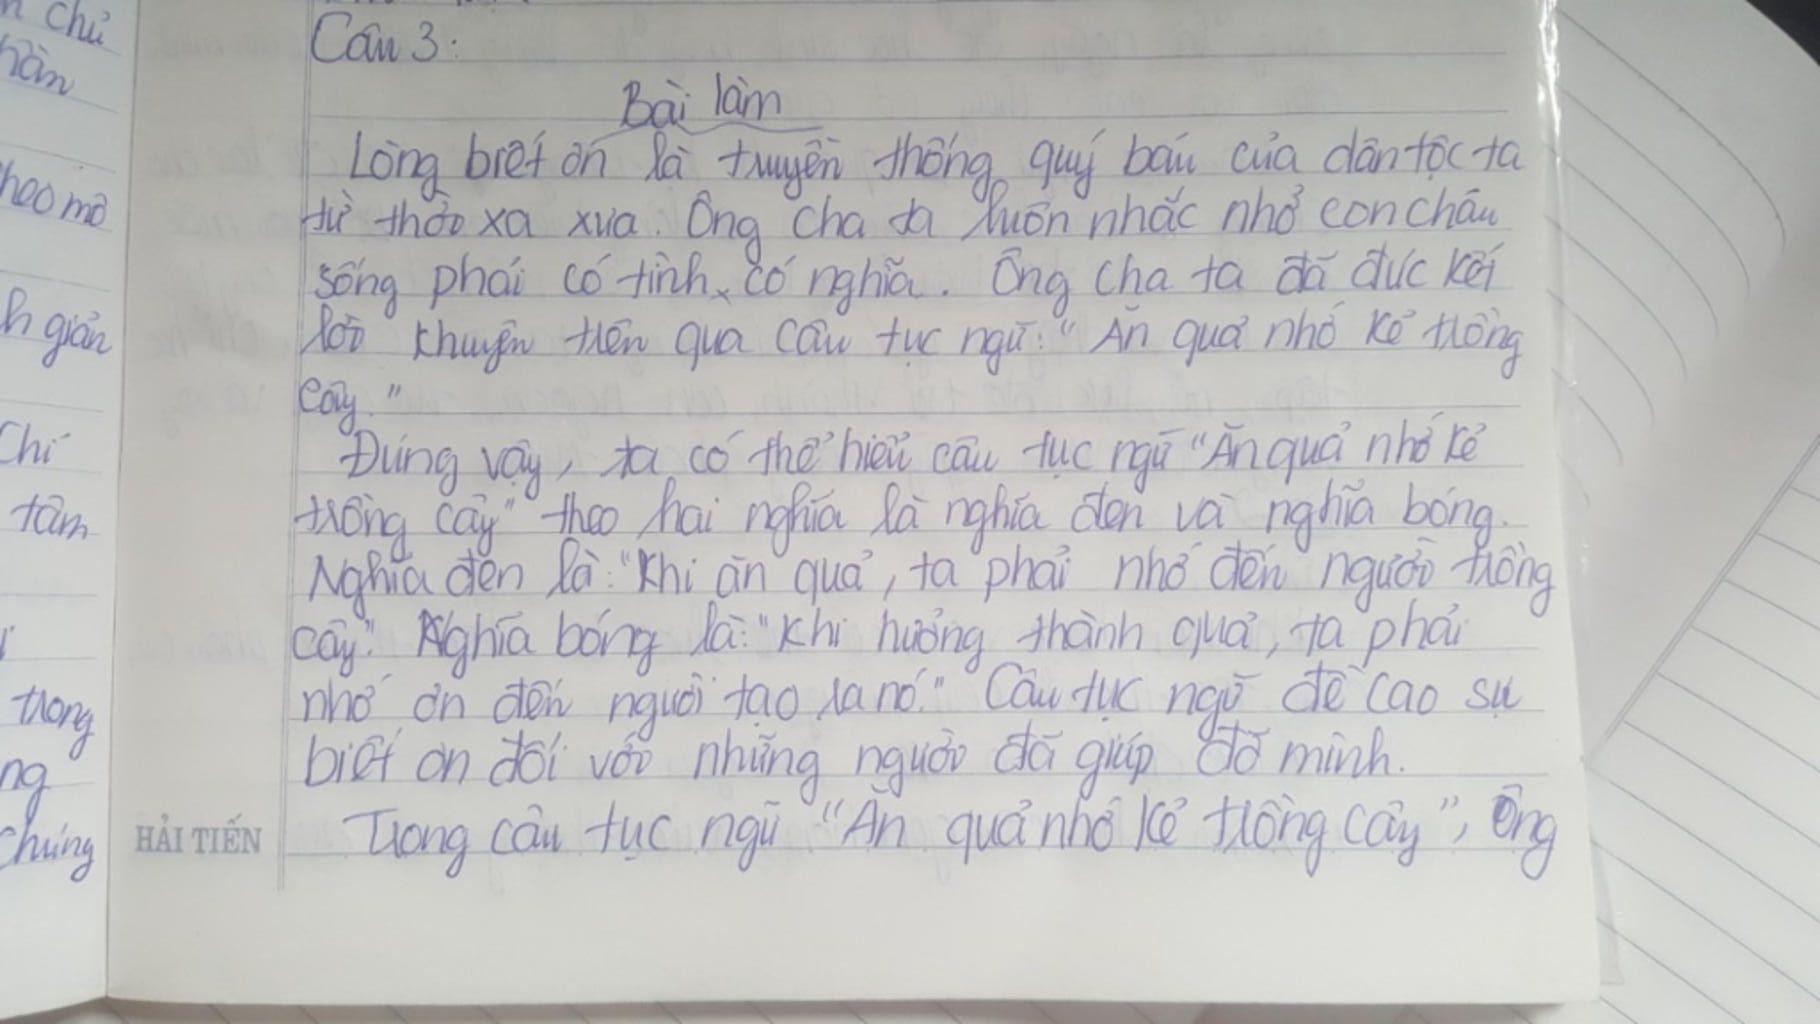 n chủ
hần
heo mô
h giản
Chí
tâm
trong
ng
chúng
Câu 3:
Bài làm
Lòng biết ơn là truyền thống quý báu của dân tộc ta
từ thời xa xưa. Ông cha ta luôn nhắc nhở con cháu
sống phải có tình, có nghĩa. Ông cha ta đã đúc kết
lời khuyên trên qua câu tục ngữ: "Ăn quả nhớ kẻ trồng
cây."
Đúng vậy, ta có thể hiểu câu tục ngữ "Ăn quả nhớ kẻ
trồng cây" theo hai nghĩa là nghĩa đen và nghĩa bóng.
Nghĩa đen là: "Khi ăn quả, ta phải nhớ đến người trồng
cây". Nghĩa bóng là: "Khi hưởng thành quả, ta phải
nhớ ơn đến người tạo ra nó." Câu tục ngữ đề cao sự
biết ơn đối với những người đã giúp đỡ mình.
Trong câu tục ngữ "Ăn quả nhớ kẻ trồng cây", Ông
HẢI TIẾN